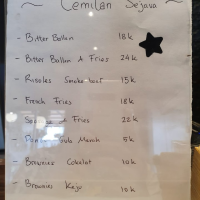 ~ Cemilan Sejawa ~
- Bitter Ballen 18k
- Bitter Ballen & Fries 24k
- Risoles Smoke-beef 15k
- French Fries 18k
- Fries 22k
- Merah 5k
- Brownies Cokelat 10k
- Brownies Keju 10k